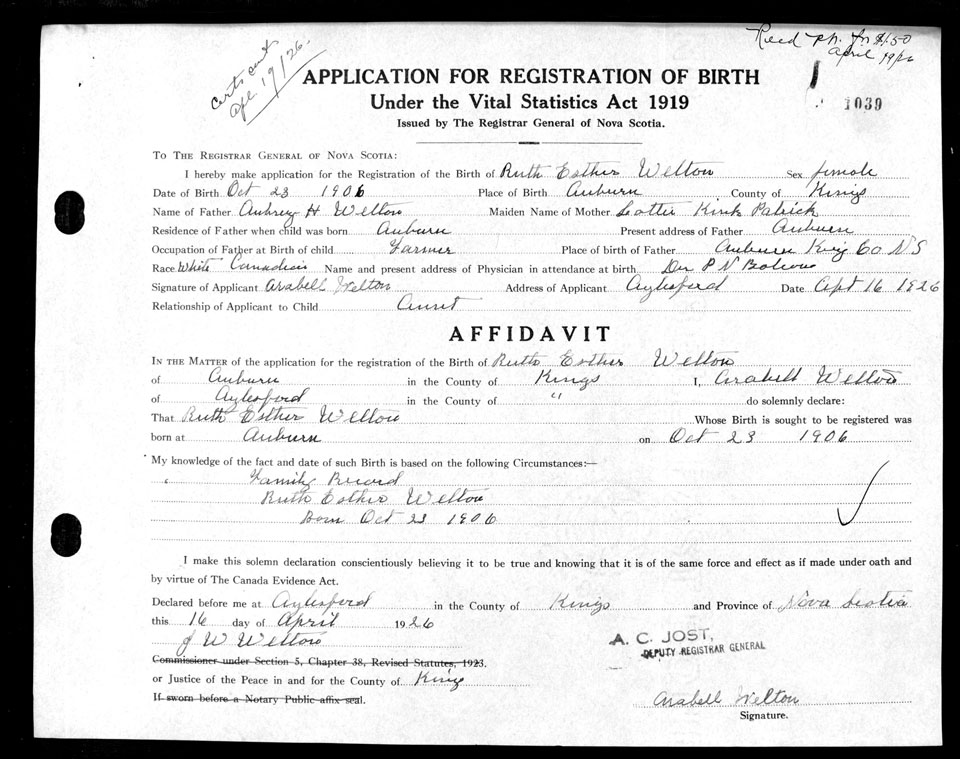 Certs cent
Apl 19/26.
Recd ph. fr $1.50
April 19/26
1039
APPLICATION FOR REGISTRATION OF BIRTH
Under the Vital Statistics Act 1919
Issued by The Registrar General of Nova Scotia.
TO THE REGISTRAR GENERAL OF NOVA SCOTIA:
I hereby make application for the Registration of the Birth of Ruth Esther Welton Sex female
Date of Birth Oct 23 1906 Place of Birth Auburn County of Kings
Name of Father Aubrey H Welton Maiden Name of Mother Lottie Kirk Patrick
Residence of Father when child was born Auburn Present address of Father Auburn
Occupation of Father at Birth of child Farmer Place of birth of Father Auburn King Co N S
Race White Canadian Name and present address of Physician in attendance at birth Dr P N
Signature of Applicant Arabell Welton Address of Applicant Aylesford Date Apt 16 1926
Relationship of Applicant to Child Aunt
AFFIDAVIT
IN THE MATTER of the application for the registration of the Birth of Ruth Esther Welton
of Auburn in the County of Kings I, Arabell Welton
of Aylesford in the County of " do solemnly declare:
That Ruth Esther Welton Whose Birth is sought to be registered was
born at Auburn on Oct 23 1906
My knowledge of the fact and date of such Birth is based on the following Circumstances:—
Family Record
Ruth Esther Welton
Born Oct 23 1906
I make this solemn declaration conscientiously believing it to be true and knowing that it is of the same force and effect as if made under oath and
by virtue of The Canada Evidence Act.
Declared before me at Aylesford in the County of Kings and Province of Nova Scotia
this 16 day of April 1926
J W Welton
A. C. JOST,
DEPUTY REGISTRAR GENERAL
Commissioner under Section 5, Chapter 38, Revised Statutes, 1923.
or Justice of the Peace in and for the County of King
If sworn before a Notary Public affix seal.
Arabell Welton
Signature.